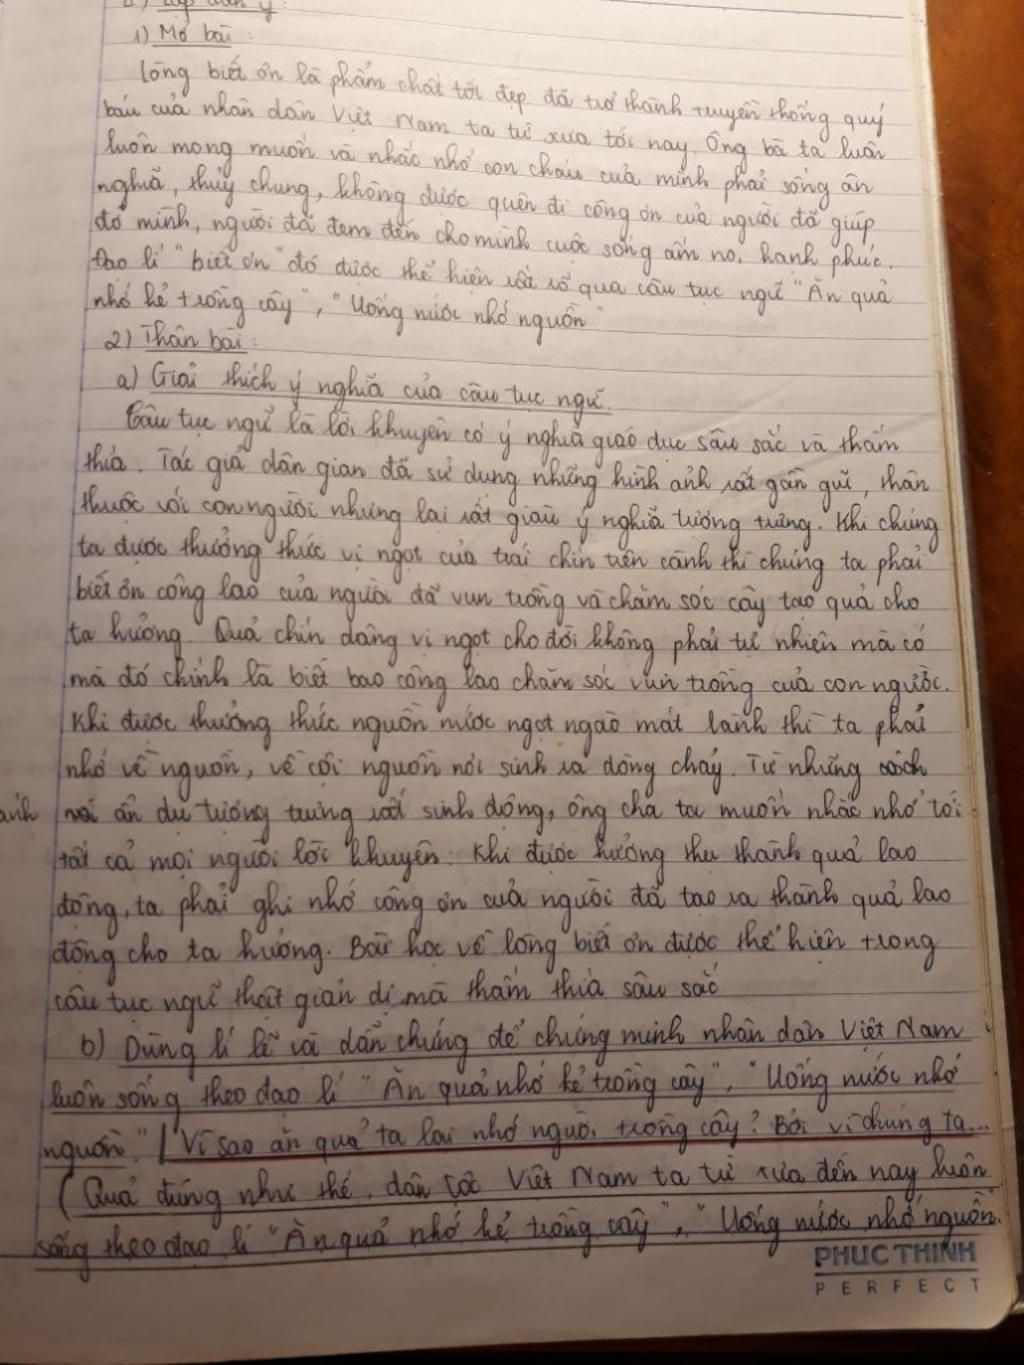 1) Mở bài:
Lòng biết ơn là phẩm chất tốt đẹp đã trở thành truyền thống quý
báu của nhân dân Việt Nam ta từ xưa tới nay. Ông bà ta luôn
luôn mong muốn và nhắc nhở con cháu của mình phải sống ân
nghĩa, thủy chung, không được quên đi công ơn của người đã giúp
đỡ mình, người đã đem đến cho mình cuộc sống ấm no, hạnh phúc.
Đạo lí "biết ơn" đó được thể hiện rất rõ qua câu tục ngữ "Ăn quả
nhớ kẻ trồng cây", "Uống nước nhớ nguồn"
2) Thân bài:
a) Giải thích ý nghĩa của câu tục ngữ.
Câu tục ngữ là lời khuyên có ý nghĩa giáo dục sâu sắc và thấm
thía. Tác giả dân gian đã sử dụng những hình ảnh rất gần gũi, thân
thuộc với con người nhưng lại rất giàu ý nghĩa tượng trưng. Khi chúng
ta được thưởng thức vị ngọt của trái chín trên cành thì chúng ta phải
biết ơn công lao của người đã vun trồng và chăm sóc cây tạo quả cho
ta hưởng. Quả chín dâng vị ngọt cho đời không phải tự nhiên mà có
mà đó chính là biết bao công lao chăm sóc vun trồng của con người.
Khi được thưởng thức nguồn nước ngọt ngào mát lành thì ta phải
nhớ về nguồn, về cội nguồn nơi sinh ra dòng chảy. Từ những
ảnh ẩn dụ tượng trưng rất sinh động, ông cha ta muốn nhắc nhở tới
tất cả mọi người lời khuyên: Khi được hưởng thụ thành quả lao
động, ta phải ghi nhớ công ơn của người đã tạo ra thành quả lao
động cho ta hưởng. Bài học về lòng biết ơn được thể hiện trong
câu tục ngữ thật giản dị mà thấm thía sâu sắc
b) Dùng lí lẽ và dẫn chứng để chứng minh nhân dân Việt Nam
luôn sống theo đạo lí "Ăn quả nhớ kẻ trồng cây", "Uống nước nhớ
nguồn" / Vì sao ăn quả ta lại nhớ người trồng cây? Bởi vì chúng ta...
(Quả đúng như thế, dân tộc Việt Nam ta từ xưa đến nay luôn
sống theo đạo lí "Ăn quả nhớ kẻ trồng cây", "Uống nước nhớ nguồn".
PHUC THINH
PERFECT